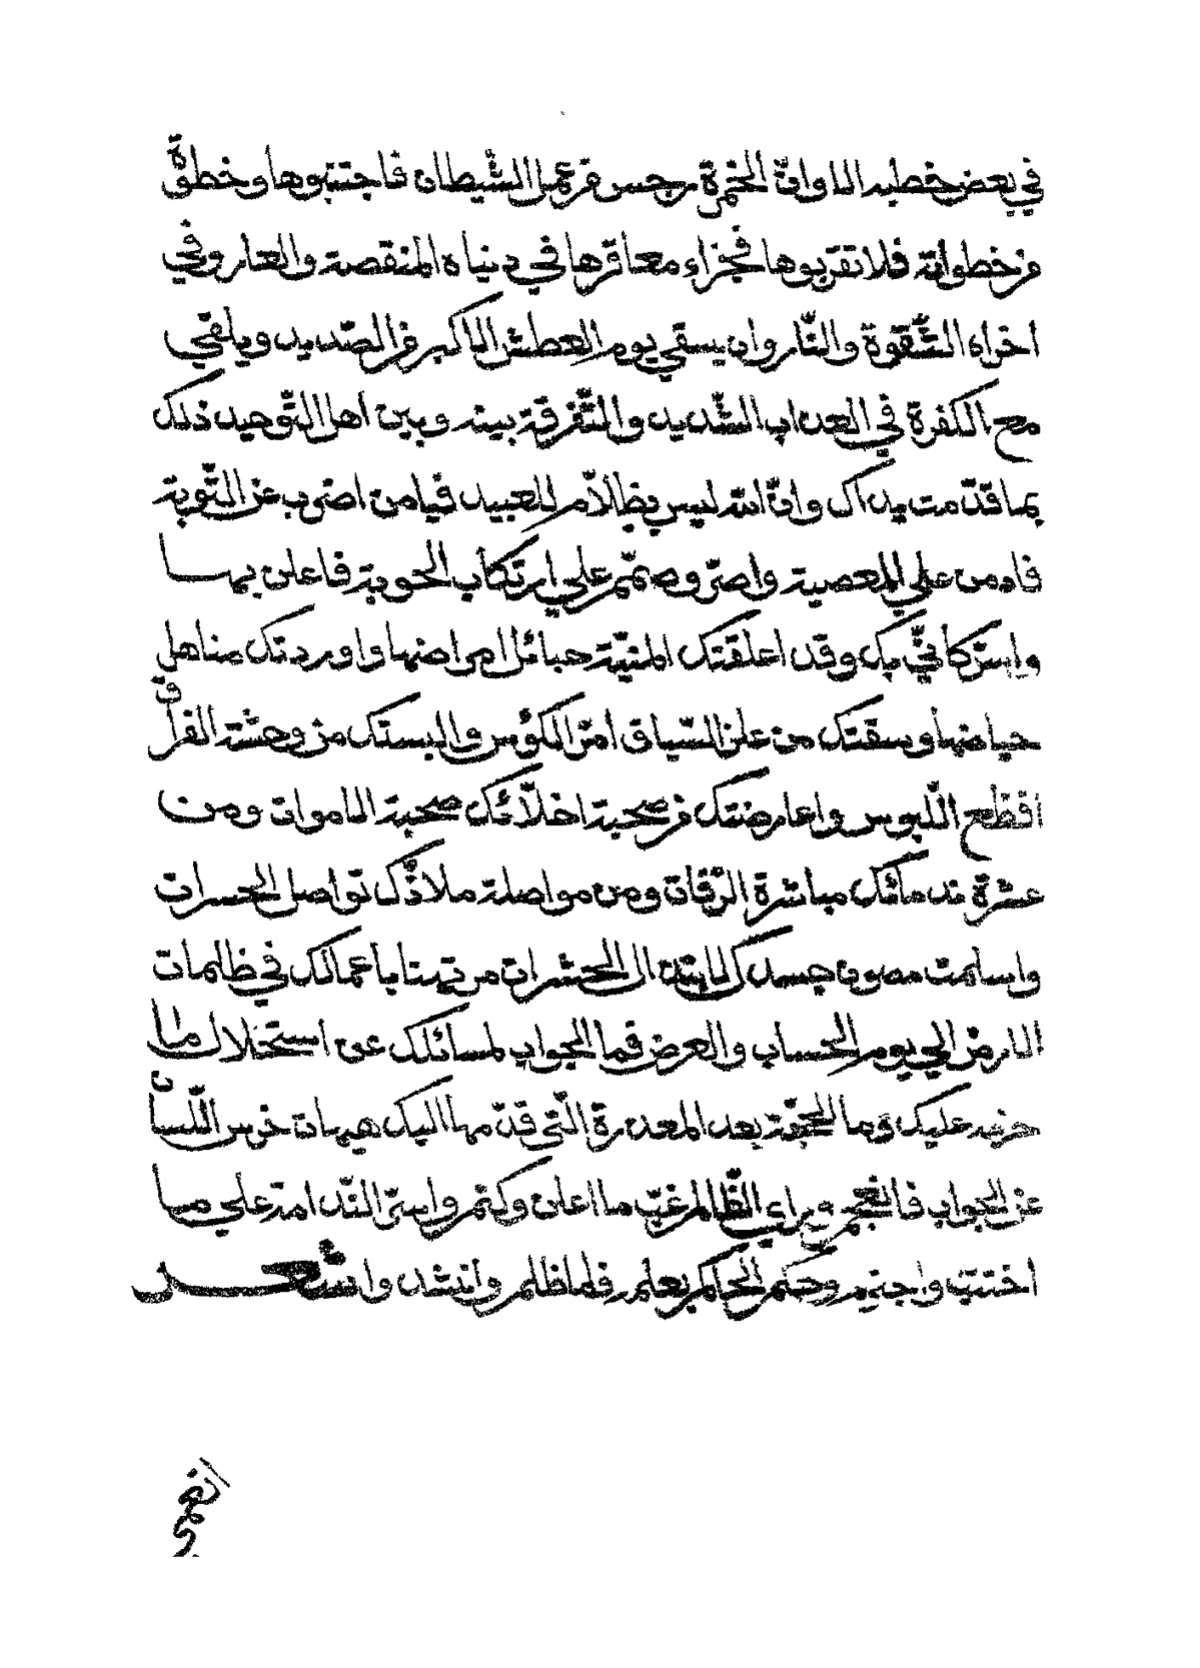 في بعض خطبه الا وان الخمرة رجس من عمل الشيطان فاجتنبوها وخطوة
من خطواته فلا تقربوها فجزاء معاقرها في دنياه المنقصة والعار وفي
اخراه الشّقوة والنّار وان يسقي يوم العطش الاكبر من الصّديد ويلقي
مع الكفرة في العذاب الشّديد والتّفرقة بينه وبين اهل التّوحيد ذلك
بما قدّمت يداك وانّ الله ليس بظلاّم للعبيد فيا من اضرب عن التّوبة
فادمن علي المعصية واصرّ وصمّم علي ارتكاب الحوبة فاعلن بها
واسرّ كأنّي بك وقد اعلقتك المنيّة حبائل امراضها واوردتك مناهل
حياضها وسقتك من علز السّياق امرّ الكؤس والبستك من وحشة الفراق
افظع اللّبوس واعارضتك من صحبة اخلاّئك صحبة الاموات ومن
عشرة ندمائك مباشرة الرّفات ومن مواصلة ملاذّك تواصل الحسرات
واسلمت مصون جسدك لابتذال الحشرات مرتهنا باعمالك في ظلمات
الارض الي يوم الحساب والعرض فما الجواب لمسائلك عن استحلال ما
حرمه عليك وما الحجّة بعد المعذرة الّتي قدّمها اليك هيهات خرس اللّسان
عن الجواب فانعجم وراي الظّالم غبّ ما اعلن وكتم واسرّ النّدامة علي ما
اجتنب واجترم وحكم الحاكم بعلمه فما ظلم وانشد وا شعر
انعمي